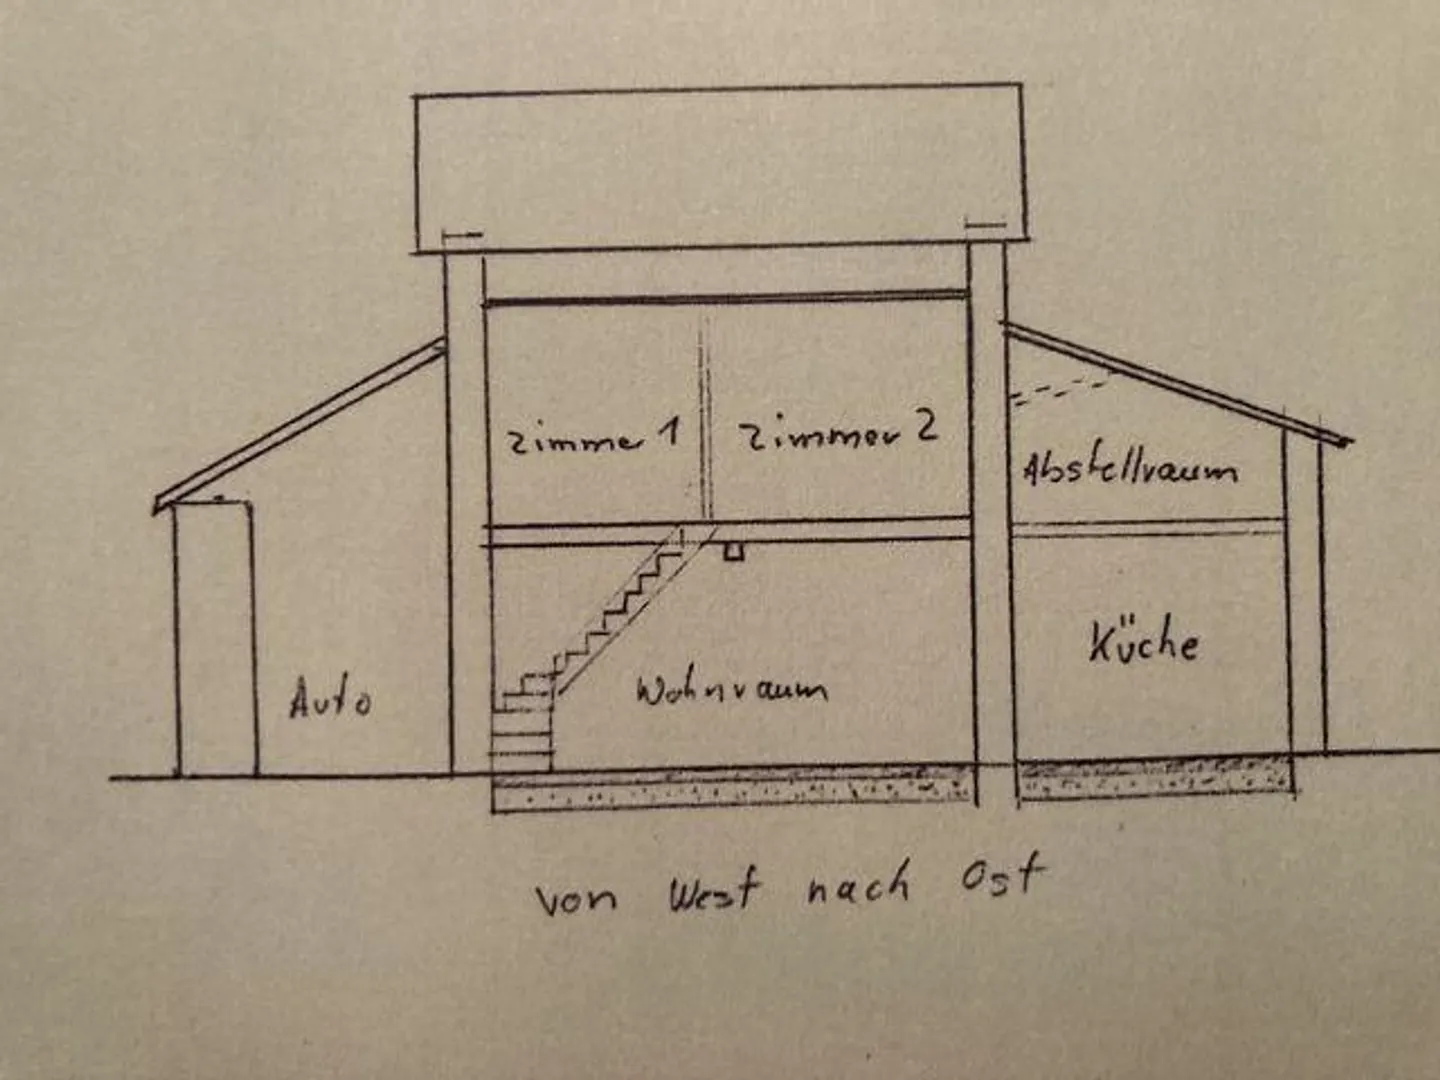 Zimmer 1
Zimmer 2
Abstellraum
Küche
Auto
Wohnraum
von West nach Ost